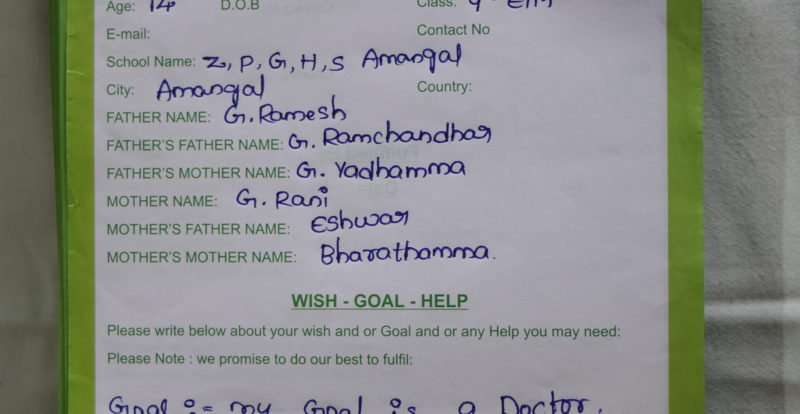 Age: 14 D.O.B Class: 9th
E-mail: Contact No
School Name: Z, P, G, H, S Amangal
City: Amangal Country:
FATHER NAME: G. Ramesh
FATHER'S FATHER NAME: G. Ramchandhar
FATHER'S MOTHER NAME: G. Yadhamma
MOTHER NAME: G. Rani
MOTHER'S FATHER NAME: Eshwar
MOTHER'S MOTHER NAME: Bharathamma.
WISH - GOAL - HELP
Please write below about your wish and or Goal and or any Help you may need:
Please Note : we promise to do our best to fulfil:
Goal := my Goal is a Doctor.